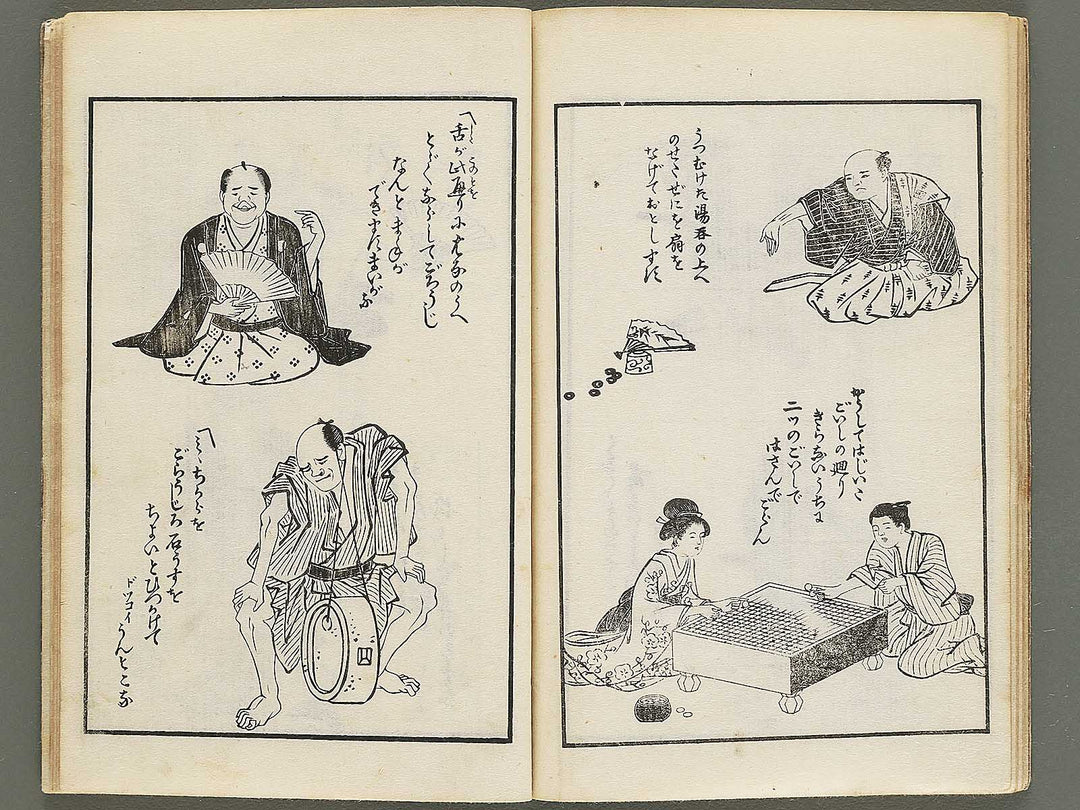 うつむけた湯呑の上へ
のせたぜにを扇を
なげておとします
かうしてはじいた
ごいしの廻り
きらないうちに
二ツのごいしで
はさんでごらん
舌が此通りにはなのうへ
とゞくならしてごらうじ
なんとまねが
できますまいがな
みゝちからを
ごらうじろ石うすを
ちよいとひつかけて
ドツコイうんとこな